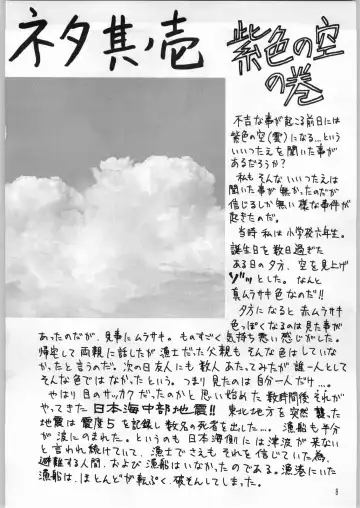 ネタ其ノ壱
紫色の空
の巻
不吉な事が起こる前日には
紫色の空(雲)になる…という
いいつたえを聞いた事が
あるだろうか?
私もそんないいつたえは
聞いた事が無かったのだが
信じるしか無い様な事件が
起きたのだ。
当時私は小学校六年生。
誕生日を数日過ぎた
ある日の夕方、空を見上げ
ゾッとした。なんと
真ムラサキ色なのだ!!
夕方になると赤ムラサキ
色っぽくなるのは見た事が
あったのだが、見事にムラサキ。ものすごく気持ち悪い感じがした。
帰宅して両親に話したが漁士だった父親もそんな色はしていな
かったと言うのだ。次の日友人にも数人あたってみたが誰一人として
そんな色ではなかったという。つまり見たのは自分一人だけ…。
やはり目のサッカクだったのかと思い始めた数時間後それが
やってきた日本海中部地震!!東北地方を突然襲った
地震は震度5を記録し数名の死者を出した…。漁船も半分
が波にのまれた。というのも日本海側には津波が来ない
と言われ続けていて、漁士でさえもそれを信じていた為、
避難する人間、および漁船はいなかったのである。漁港にいた
漁船は、ほとんどが転ぷく、破そんしてしまった。
9